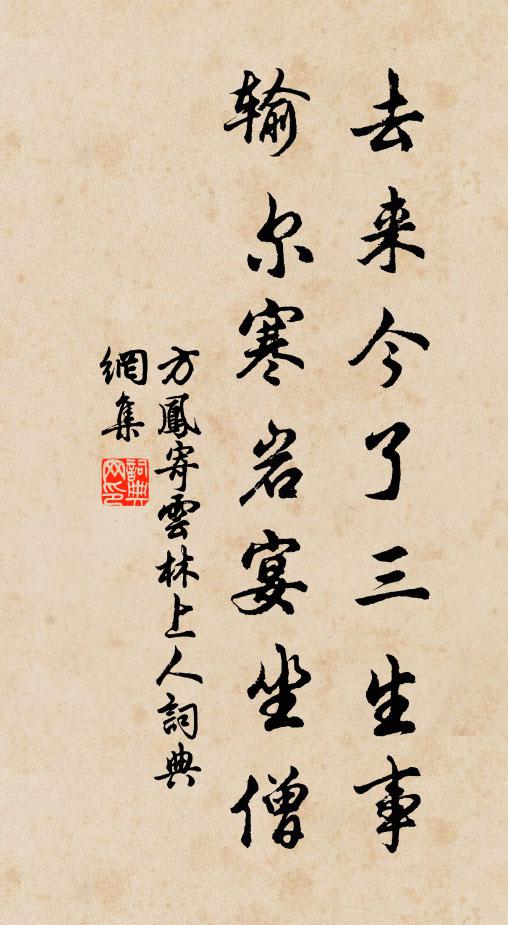 去来今了三生事
输尔寒岩宴坐僧
方鳳寄雲林上人詞典
網集
詞典网印